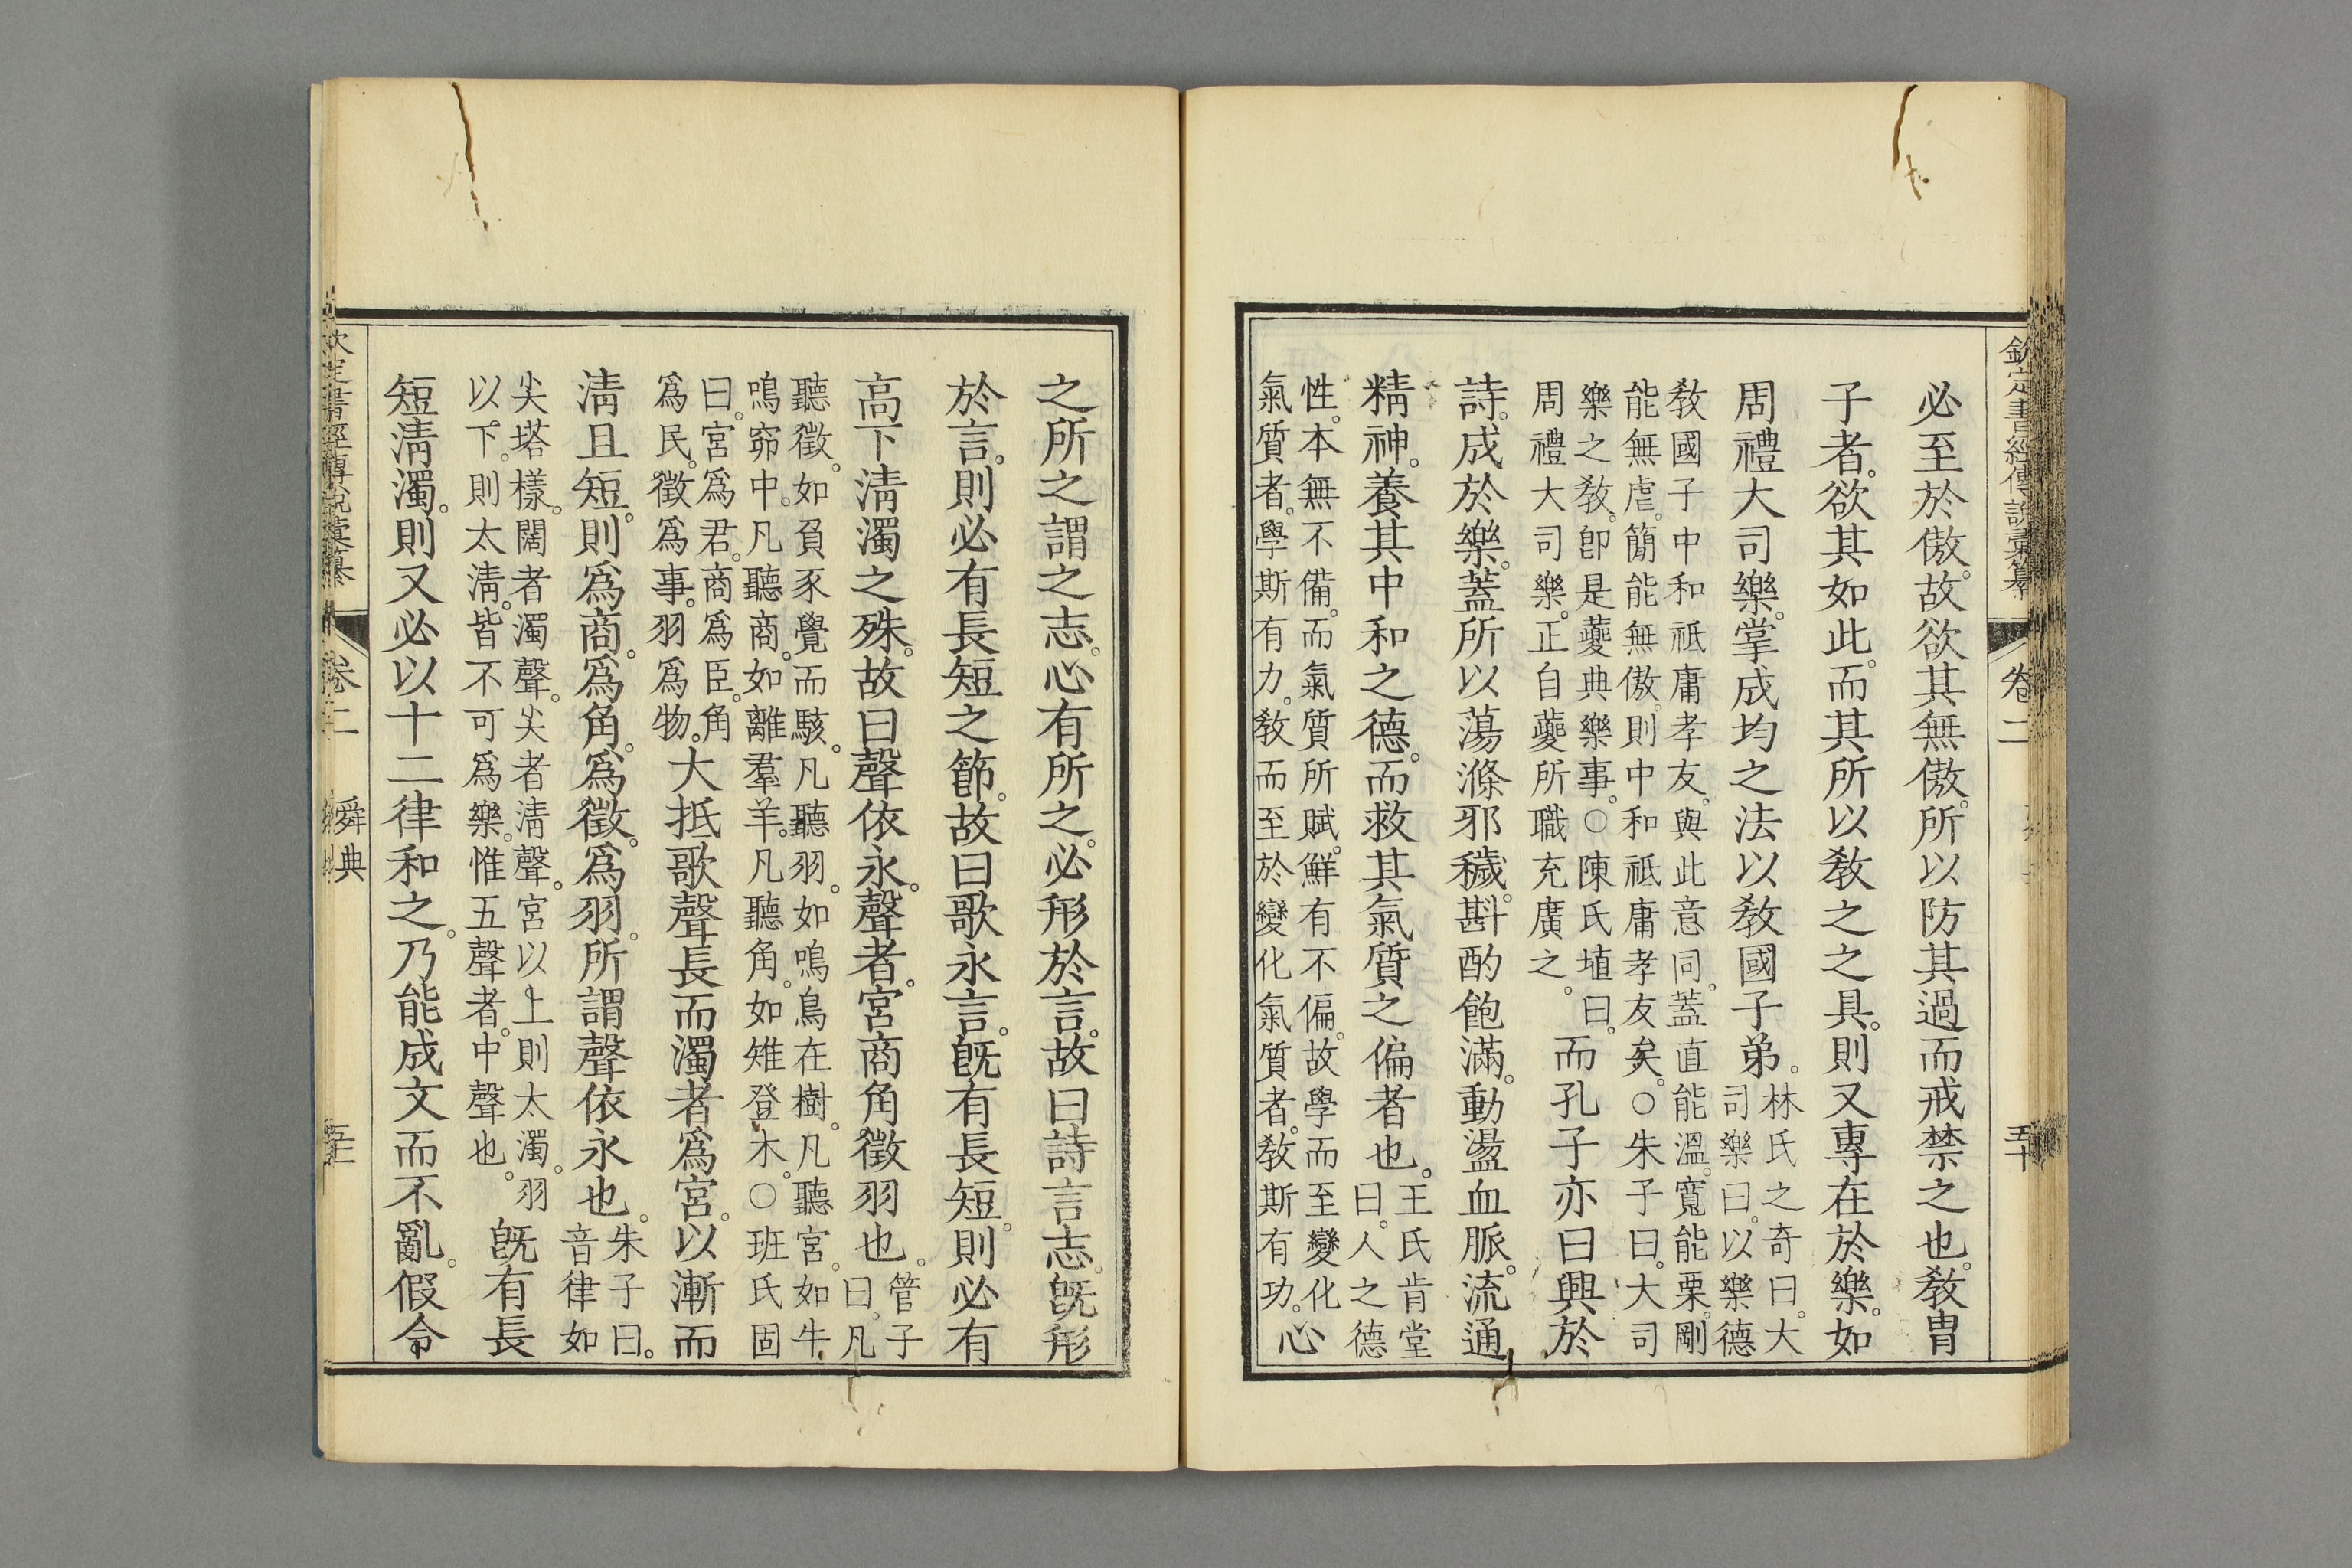 欽定書經傳說彙纂 卷二 五十
必至於傲。故欲其無傲。所以防其過而戒禁之也。敎冑
子者。欲其如此。而其所以敎之之具。則又專在於樂。如
周禮大司樂。掌成均之法以敎國子弟。
林氏之奇曰。大
司樂曰。以樂德
敎國子中和祗庸孝友。與此意同。蓋直能溫。寬能栗。剛
能無虐。簡能無傲。則中和祗庸孝友矣。○朱子曰。大司
樂之敎。卽是夔典樂事。○陳氏埴曰。
周禮大司樂。正自夔所職充廣之。
而孔子亦曰興於
詩。成於樂。蓋所以蕩滌邪穢。斟酌飽滿。動盪血脈。流通
精神。養其中和之德。而救其氣質之偏者也。
王氏肯堂
曰。人之德
性。本無不備。而氣質所賦。鮮有不偏。故學而至變化
氣質者。學斯有力。敎而至於變化氣質者。敎斯有功。
心
之所之謂之志。心有所之。必形於言。故曰詩言志。旣形
於言。則必有長短之節。故曰歌永言。旣有長短。則必有
高下淸濁之殊。故曰聲依永。聲者。宮商角徵羽也。
管子
曰。凡
聽徵。如負豕覺而駭。凡聽羽。如鳴鳥在樹。凡聽宮。如牛
鳴窌中。凡聽商。如離羣羊。凡聽角。如雉登木。○班氏固
曰。宮爲君。商爲臣。角
爲民。徵爲事。羽爲物。
大抵歌聲長而濁者爲宮。以漸而
淸且短。則爲商。爲角。爲徵。爲羽。所謂聲依永也。
朱子曰。
音律如
尖塔樣。闊者濁聲。尖者淸聲。宮以上則太濁。羽
以下。則太淸。皆不可爲樂。惟五聲者。中聲也。
旣有長
短淸濁。則又必以十二律和之。乃能成文而不亂。假令
欽定書經傳說彙纂 卷二 舜典